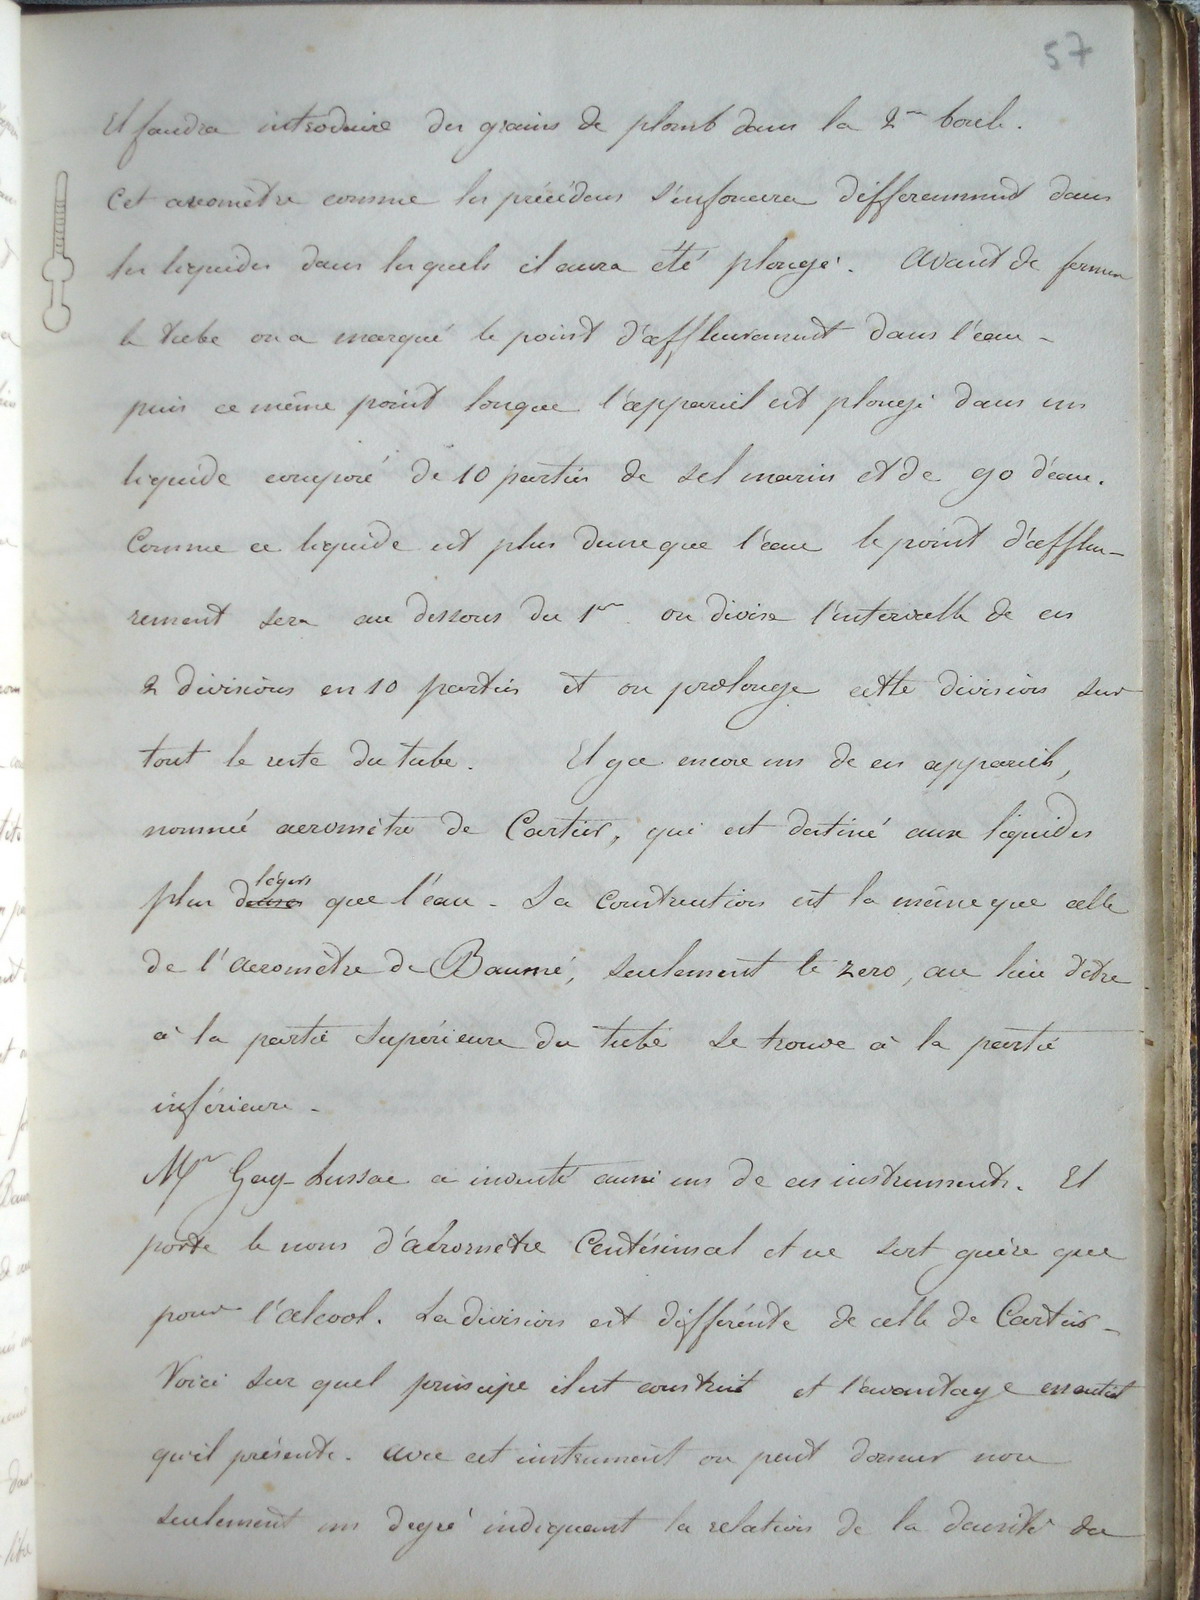 57
Il faudra introduire des grains de plomb dans la 2me boule.
Cet areomètre comme les précédens s'enfoncera differemment dans
les liquides dans lesquels il aura été plongé. Avant de fermer
le tube on a marqué le point d'affleurement dans l'eau -
puis ce même point lorsque l'appareil est plongé dans un
liquide composé de 10 parties de sel marin et de 90 d'eau.
Comme ce liquide est plus dense que l'eau le point d'affleu-
rement sera au dessous du 1er on divise l'intervalle de ces
2 divisions en 10 parties et on prolonge cette division sur
tout le reste du tube. Il y a encore un de ces appareils,
nommé aerometre de Cartier, qui est destiné aux liquides
plus denses légers que l'eau - La construction est la même que celle
de l'aeromètre de Baumé, seulement le zero, au lieu d'etre
à la partie supérieure du tube se trouve à la partie
inférieure -
Mr Gay-Lussac a inventé aussi un de ces instruments. Il
porte le nom d'aéromètre Centésimal et ne sert guère que
pour l'alcool. La division est différente de celle de Cartier -
Voici sur quel principe il est construit et l'avantage essentiel
qu'il présente. avec cet instrument on peut donner non
seulement un degré indiquant la relation de la densité du